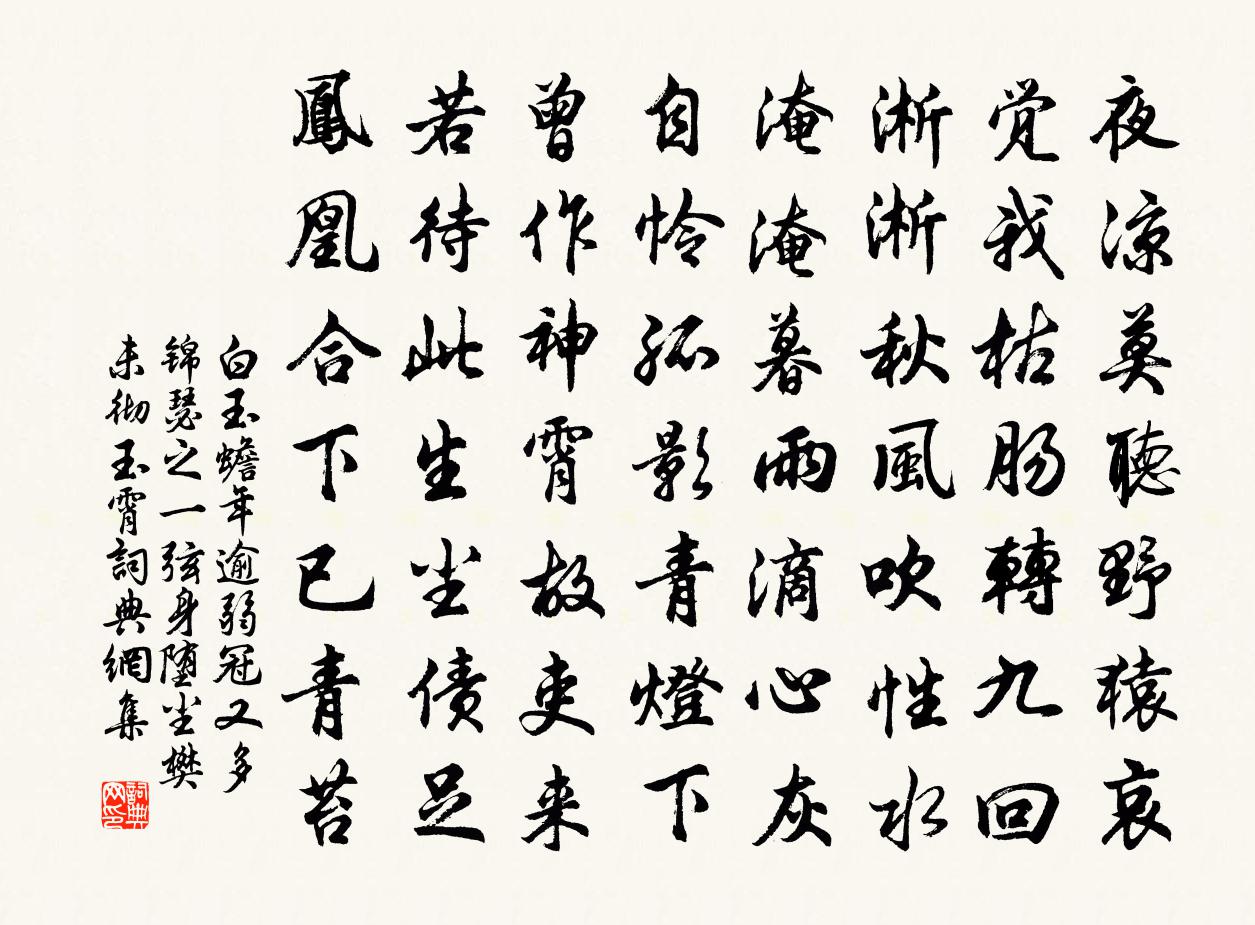 夜凉莫聽野猿哀
觉我枯肠轉九回
淅淅秋風吹性水
淹淹暮雨滴心灰
自怜孤影青燈下
曾作神霄故吏来
若待此生尘债足
鳳凰合下已青苔
白玉蟾年逾弱冠又多
锦瑟之一弦身堕尘樊
未彻玉霄詞典網集
詞典网印